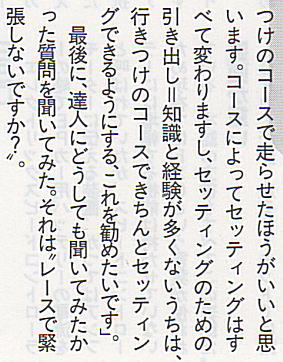 つけのコースで走らせたほうがいいと思
います。コースによってセッティングはす
べて変わりますし、セッティングのための
引き出し＝知識と経験が多くないうちは、
行きつけのコースできちんとセッティン
グできるようにする、これを勧めたいです」。
　最後に、達人にどうしても聞いてみたか
った質問を聞いてみた。それは〝レースで緊
張しないですか？〟。